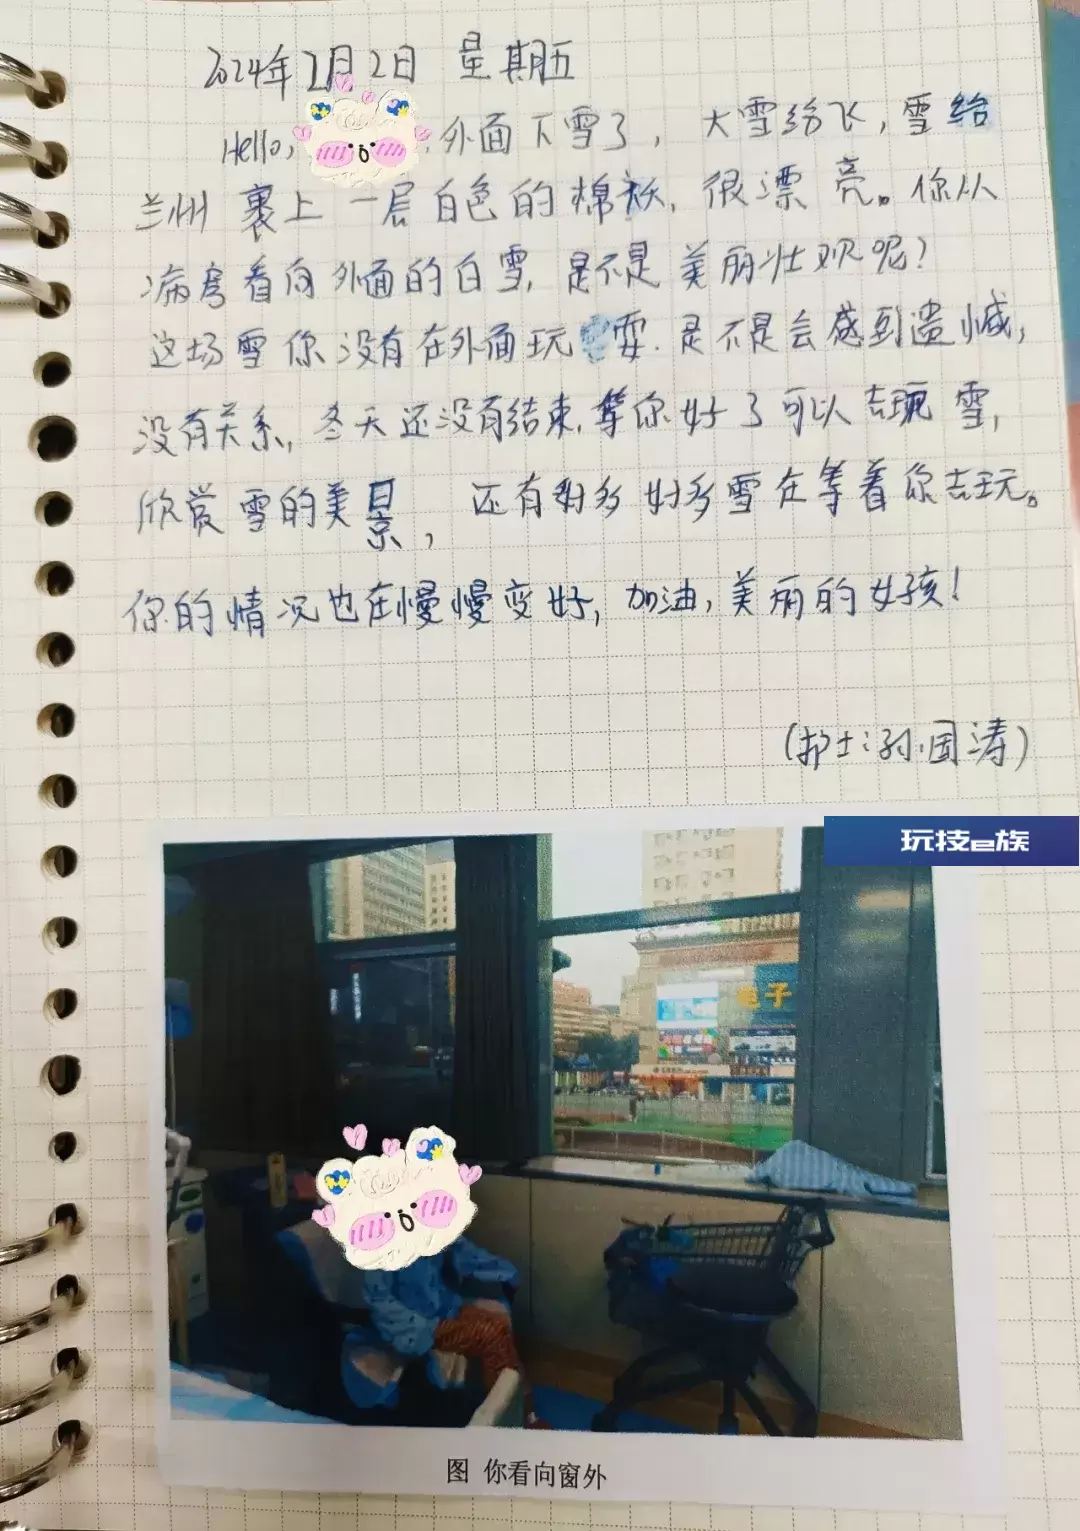 2024年2月2日 星期五
Hello, 外面下雪了，大雪纷飞，雪给
兰州裹上一层白色的棉袄，很漂亮。你从
病房看向外面的白雪，是不是美丽壮观呢？
这场雪你没有在外面玩耍.是不是会感到遗憾，
没有关系，冬天还没有结束，等你好了可以去玩雪，
欣赏雪的美景，还有好多好多雪在等着你去玩。
你的情况也在慢慢变好，加油，美丽的女孩！
(护士：孙国涛)
玩技e族
电子
图 你看向窗外